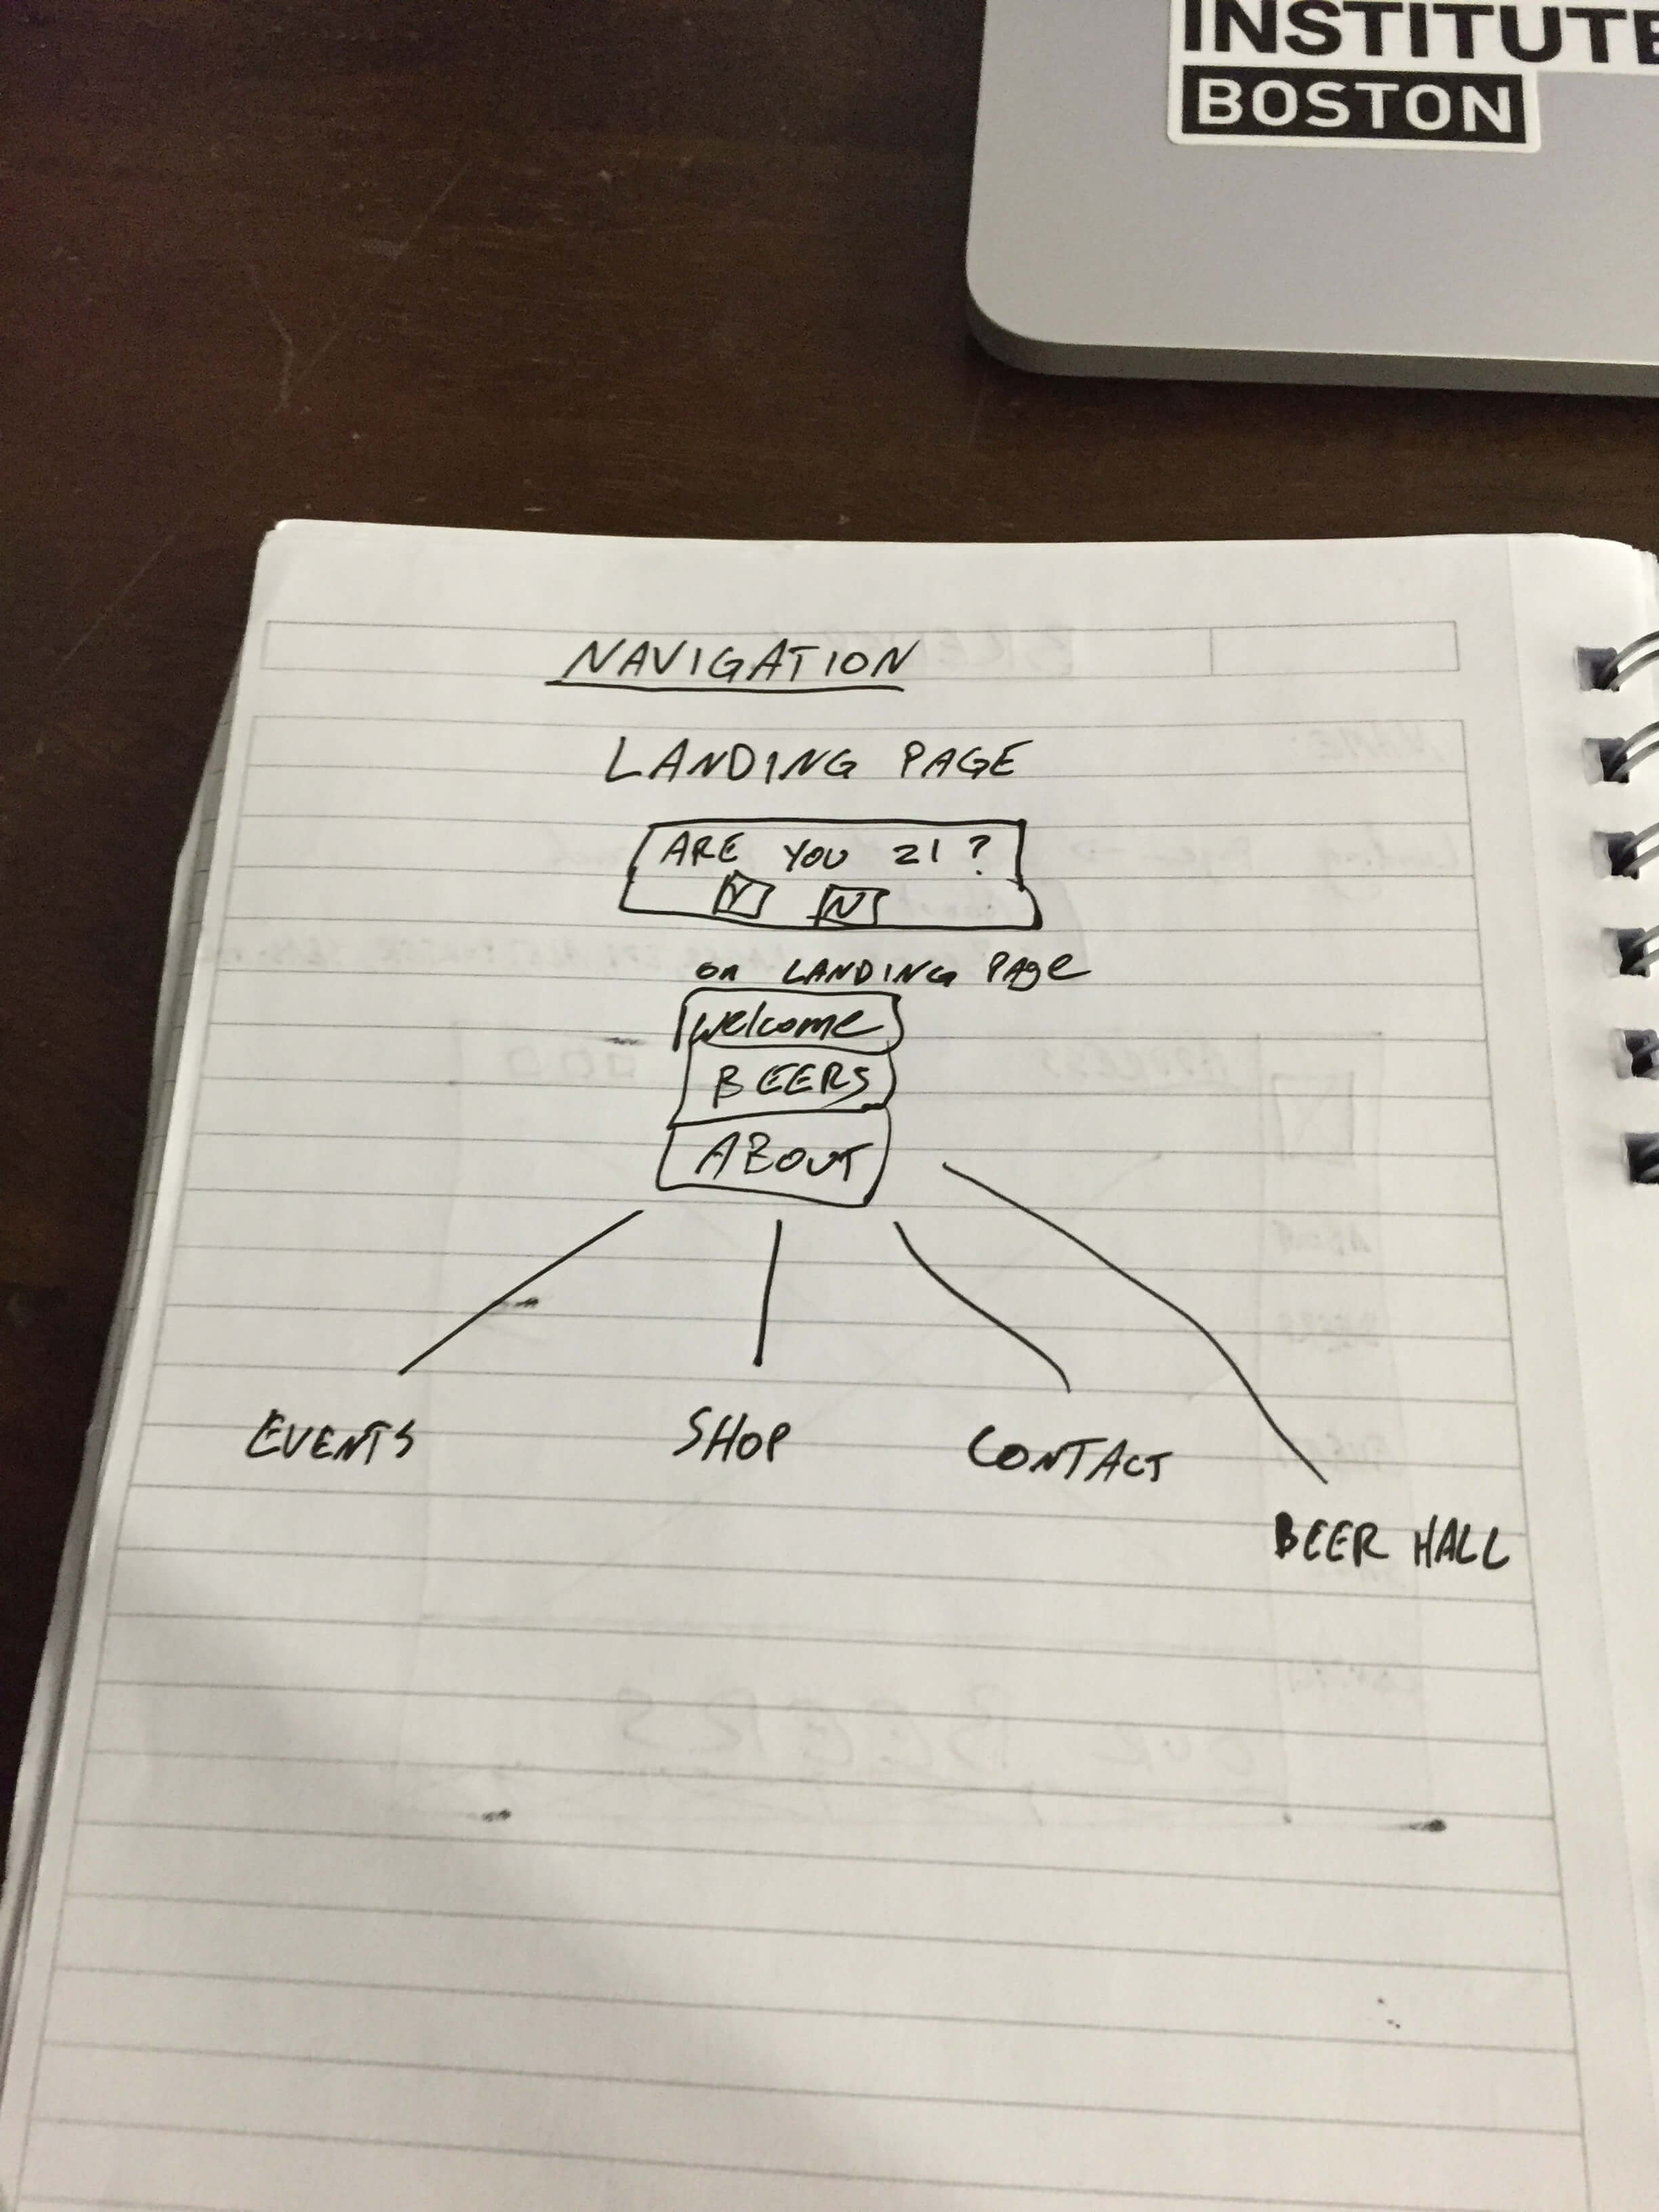 INSTITUTE
BOSTON
NAVIGATION
LANDING PAGE
ARE YOU 21?
Y N
on LANDING PAge
welcome
BEERS
ABOUT
EVENTS SHOP CONTACT
BEER HALL